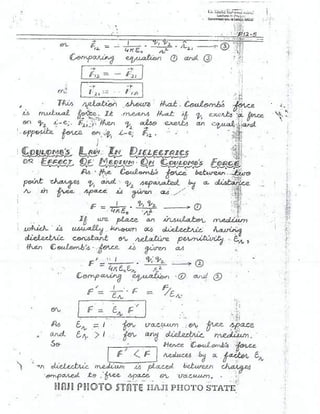 P12-5
or F₁₂ = 1/4πε₀ · q₁q₂/r² · r̂₂₁ → ③
Comparing equation ① and ③
F₁₂ = − F₂₁
or F₂₁ = − F₁₂
This relation shows that Coulomb's force
is mutual force. It means that if q₁ exerts a force
on q₂ i.e; F₂₁, then q₂ also exerts an equal and
opposite force on q₁ i.e; F₁₂.
COULOMB'S LAW IN DIELECTRICS
OR EFFECT OF MEDIUM ON COULOMB'S FORCE
As the Coulomb's force between two
point charges q₁ and q₂ separated by a distance
r in free space is given as
F = 1/4πε₀ q₁q₂/r² → ①
If we place an insulator medium
which is usually known as dielectric having
dielectric constant or relative permittivity εr,
then Coulomb's force is given as
F' = 1/4πε₀εr q₁q₂/r² → ②
Comparing equation ① and ②
F' = 1/εr · F = F/εr
or F = εr F'
As εr = 1 for vacuum or free space
and εr > 1 for any dielectric medium.
So Hence Coulomb's force
F' < F reduces by a factor εr
dielectric medium is placed between charges
compared to free space or vacuum.
HAJI PHOTO STATE HAJI PHOTO STATE